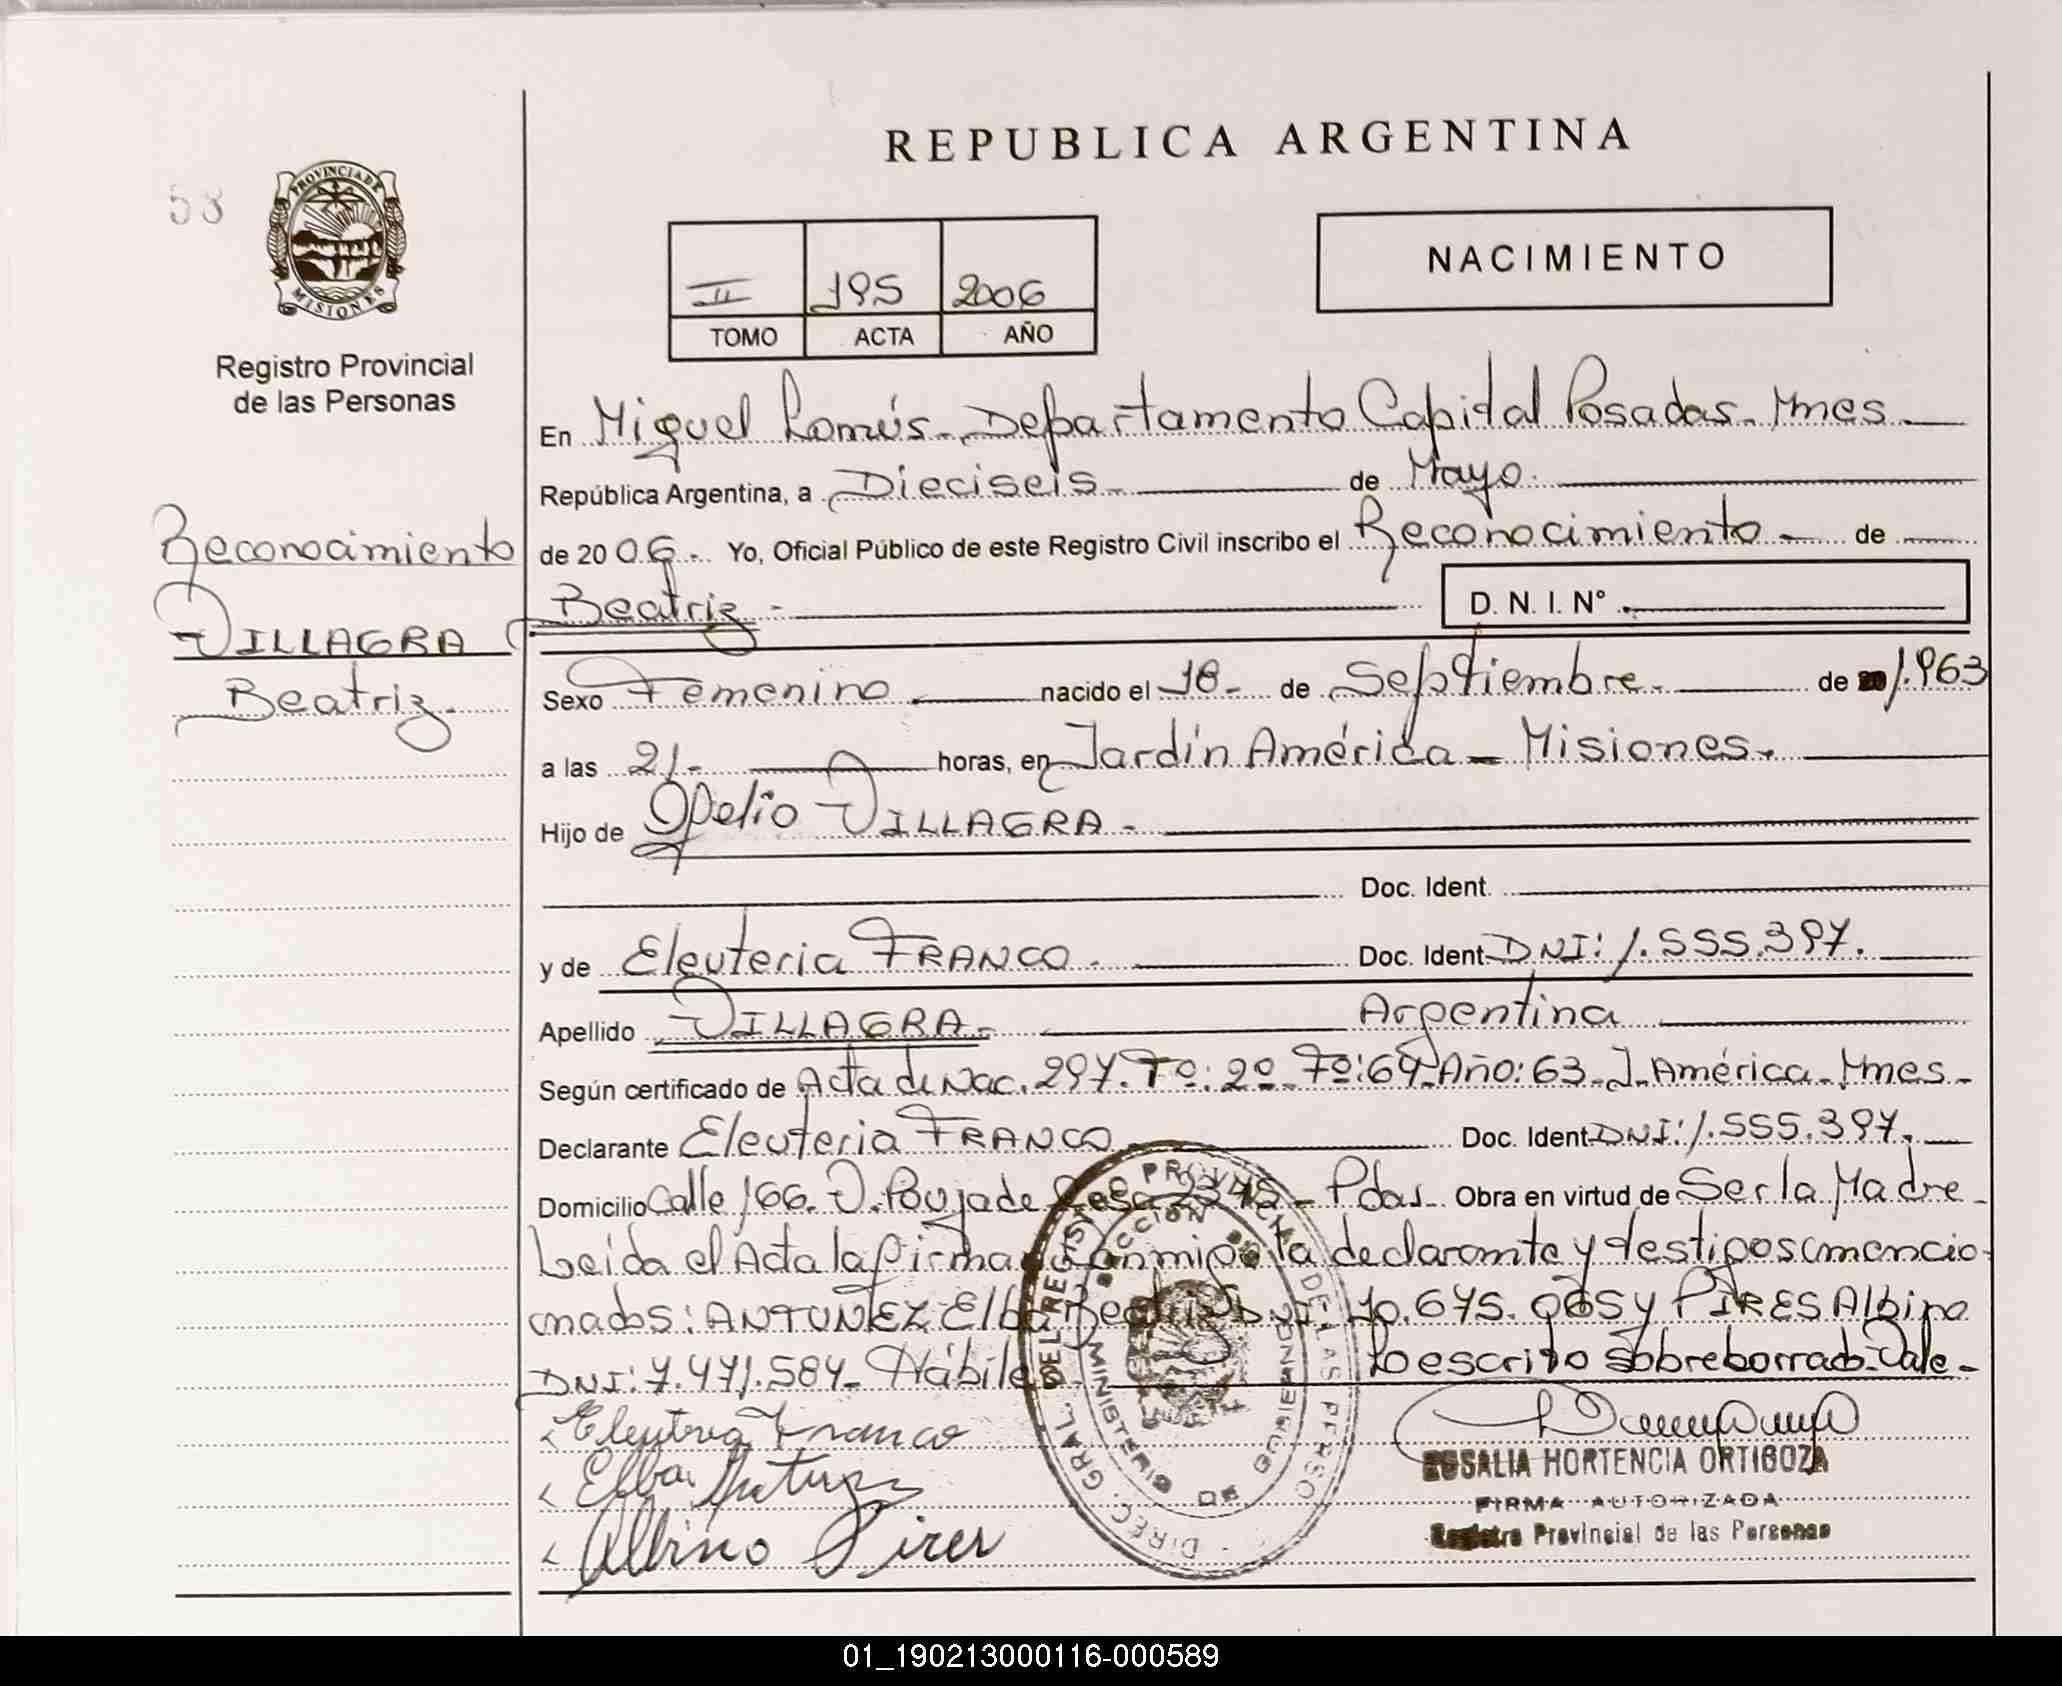 REPUBLICA ARGENTINA
53
PROVINCIA DE
MISIONES
NACIMIENTO
II 195 2006
TOMO ACTA AÑO
Registro Provincial
de las Personas
En Miguel Lanús - Departamento Capital Posadas - Mnes
República Argentina, a Dieciseis de Mayo.
de 2006.- Yo, Oficial Público de este Registro Civil inscribo el Reconocimiento - de
Reconocimiento
Beatriz - D. N. I. Nº
VILLAGRA
Beatriz
Sexo Femenino nacido el 18 - de Septiembre - de 1.963
a las 21 - horas, en Jardín América - Misiones.
Hijo de Ofelio VILLAGRA -
Doc. Ident.
y de Eleuteria FRANCO - Doc. Ident. DNI: 1.555.397.
Apellido VILLAGRA - Argentina
Según certificado de Acta de Nac. 297. Tº: 2º Fº: 69 - Año: 63 - J. América - Mnes -
Declarante Eleuteria FRANCO Doc. Ident. DNI: 1.555.397.
Domicilio Calle 166. V. Poujade Casa - Pdas. Obra en virtud de Ser la Madre -
Leída el Acta la firma con migo la declarante y testigos mencio
nados: ANTUNEZ Elba Beatriz y PIRES Albino
DNI: 7.471.584 - Hábiles Lo escrito sobreborrado - Vale -
Eleuteria Franco
Elba Antunez
Albino Pires
ROSALIA HORTENCIA ORTIGOZA
FIRMA AUTORIZADA
Registro Provincial de las Personas
DIREC. GRAL. DEL REGISTRO PROVINCIAL DE LAS PERSONAS
MINISTERIO DE GOBIERNO
01_190213000116-000589